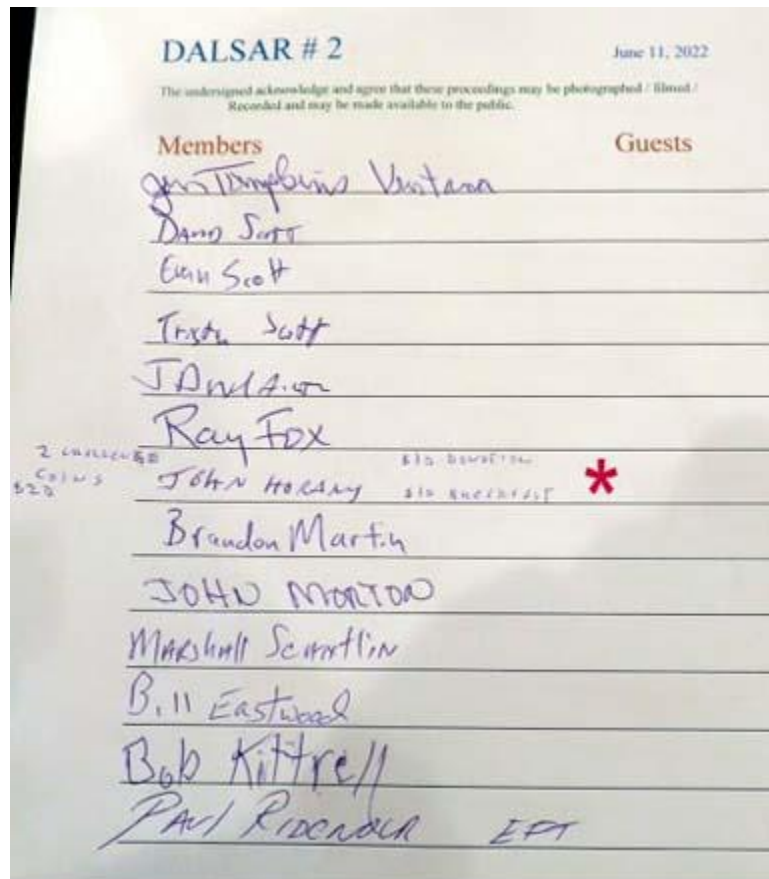 DALSAR # 2 June 11, 2022
The undersigned acknowledge and agree that these proceedings may be photographed / filmed /
Recorded and may be made available to the public.
Members Guests
Tompkins Ventana
David Scott
Evan Scott
Scott
Ray Fox
2 CHALLENGE $10 DONATION
COINS JOHN HORANY $10 BREAKFAST *
$20
Brandon Martin
JOHN MORTON
MARShAll ScANtliN
Bill Eastwood
Bob Kittrell
PAUl RIDENOUR EFT